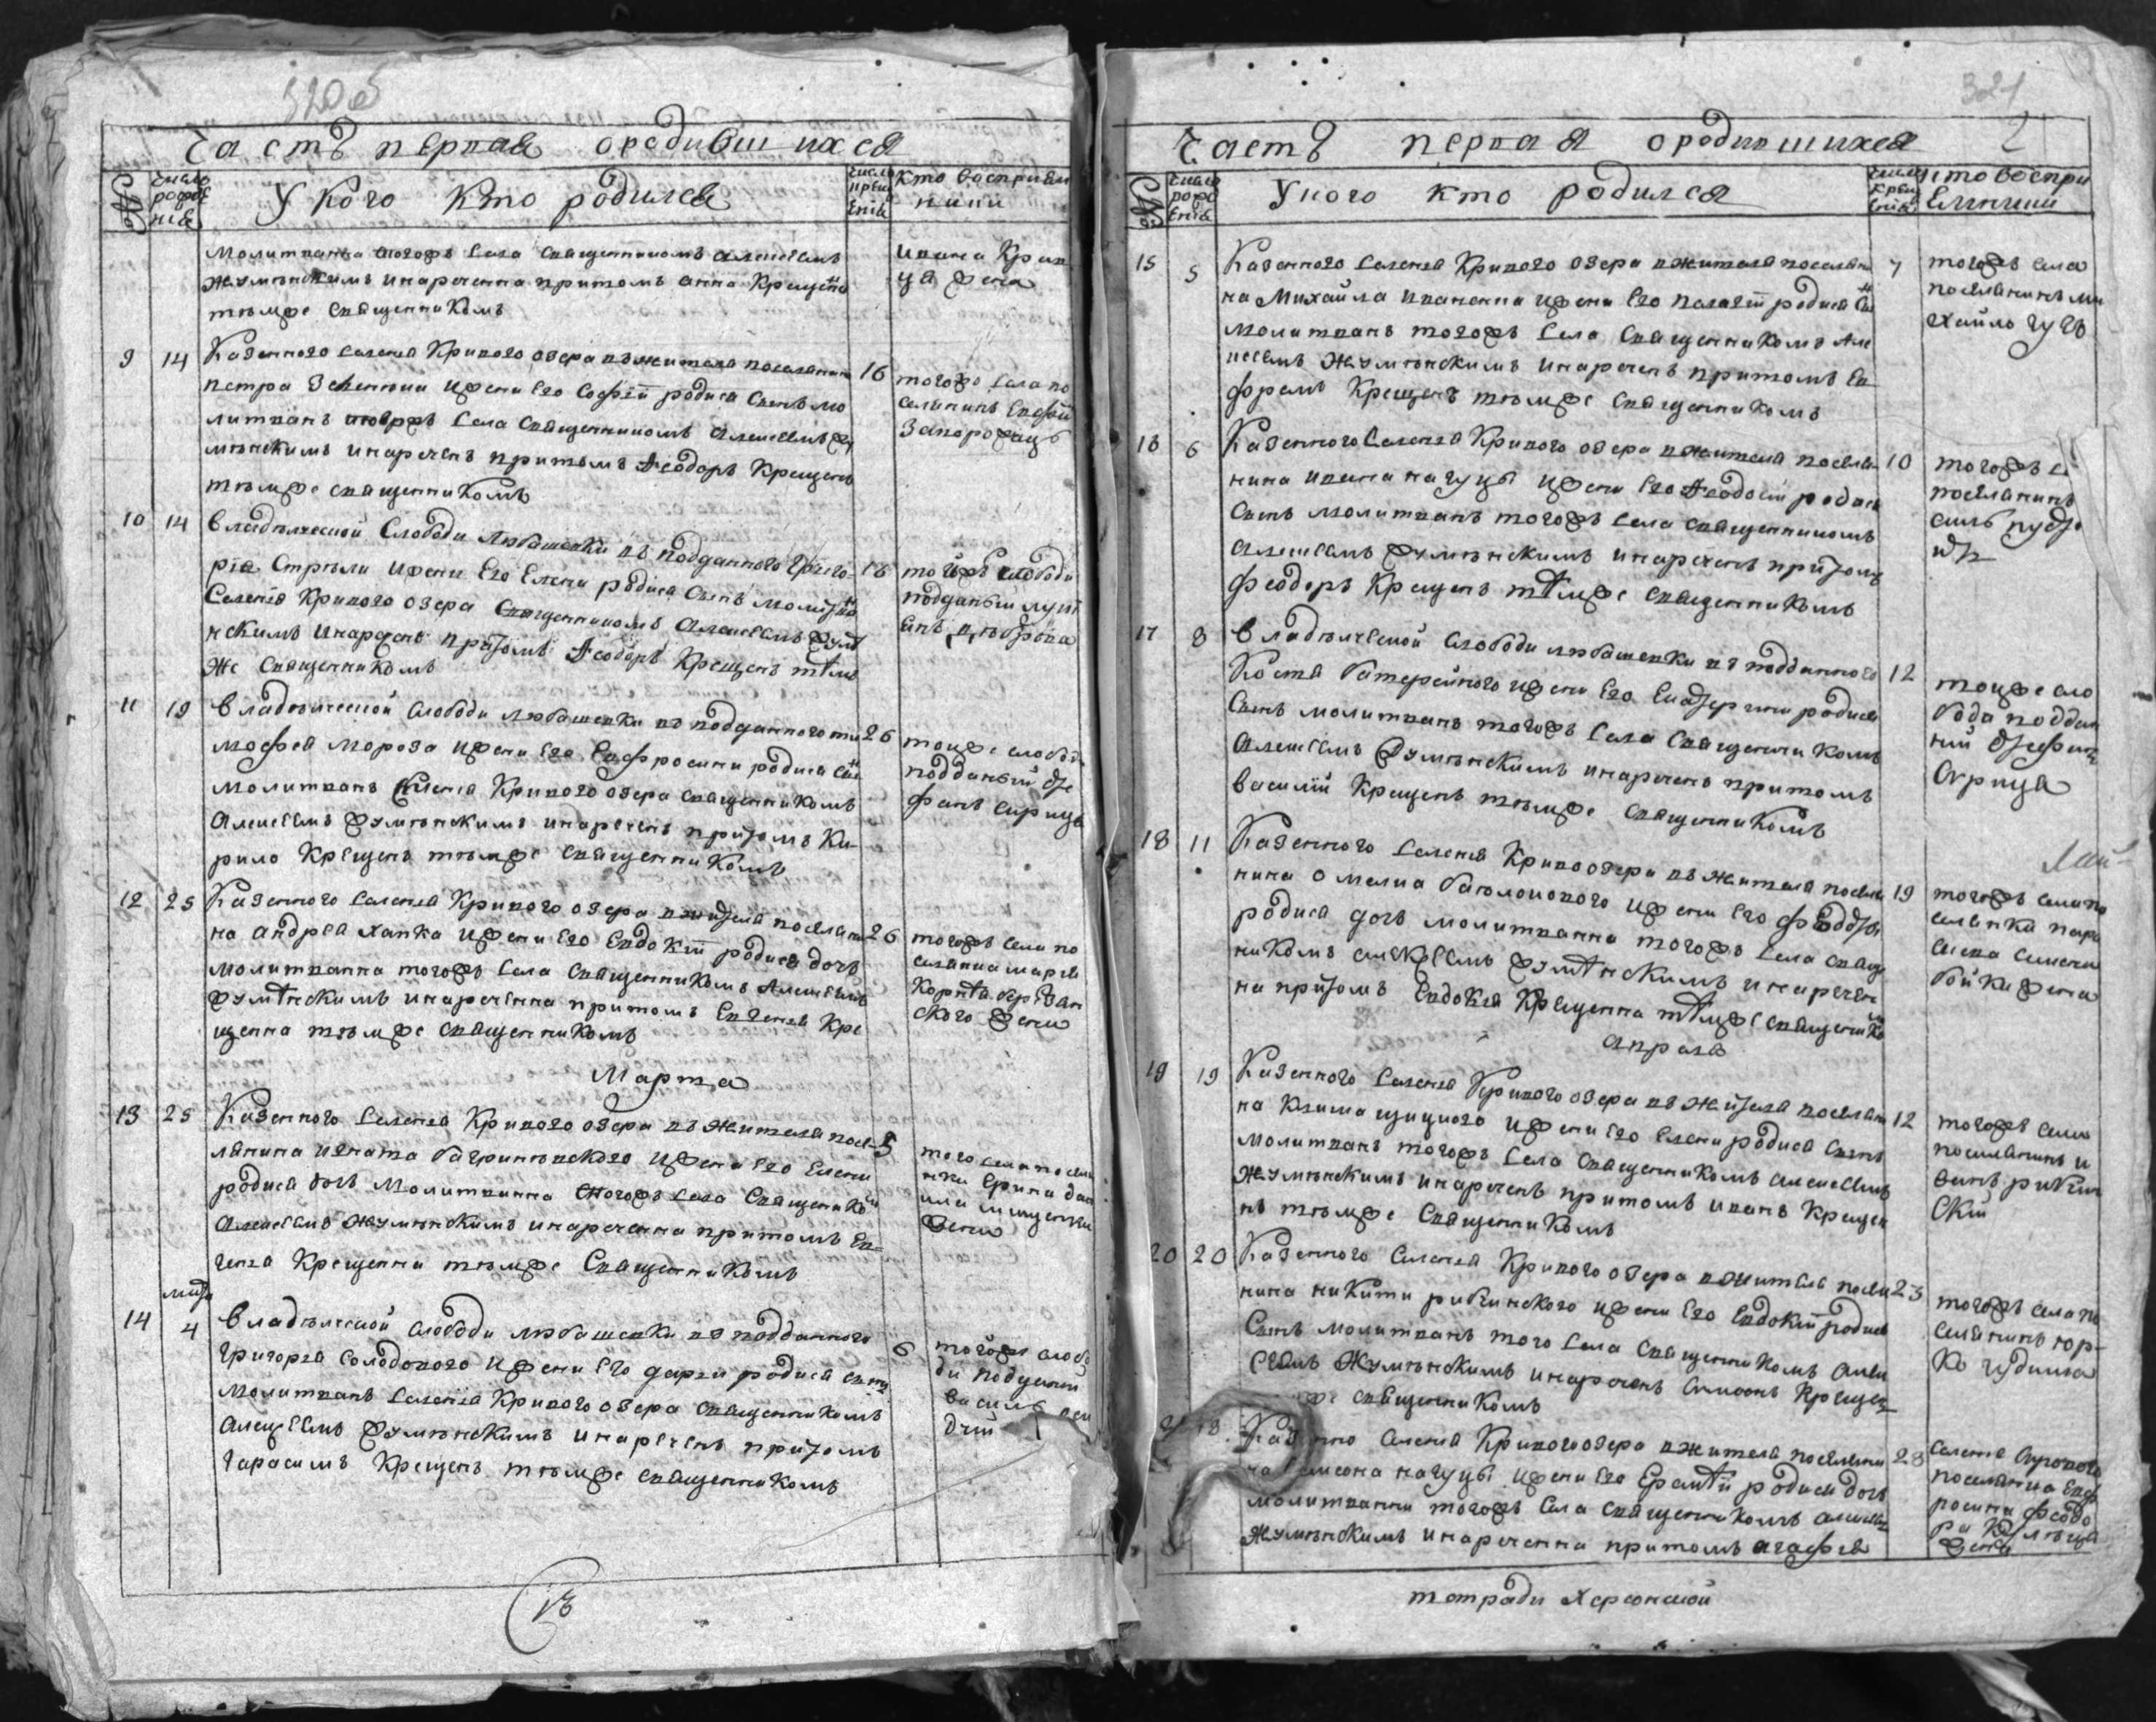 320об
Часть первая о родившихся
№
число рожденія
У кого кто родился
число крещенія
кто восприемники
молитванна тогожъ села священникомъ алексѣемъ
жумѣнскимъ инареченна притомъ анна крещенна
тѣмже священникомъ
ивана Крив
ця жена
9 14 Казенного селенія Кривого озера въ жителя поселянина 16
петра Зеленыи ижени его Софіи родися сынъ мо
литванъ тогожъ села священникомъ алексѣемъ жу
мѣнскимъ инареченъ притомъ Ѳеодоръ крещенъ
тѣмже священникомъ
тогожъ села по
селянинъ
Запорожецъ
10 14 владѣлческой слободи любашевки въ подданного Григо- 16
рія Стрѣли ижени его Елени родися сынъ молитванъ
селенія Кривого озера священникомъ алексѣемъ жумѣ
нскимъ инареченъ притомъ Ѳеодоръ крещенъ тѣмъ
же священникомъ
тойжъ слободи
подданый лукі
анъ
11 19 владѣлческой слободи любашевки въ подданного ти 26
мофея Мороза ижени его Евфросини родися сынъ
молитванъ селенія Кривого озера священникомъ
алексѣемъ жумѣнскимъ инареченъ притомъ Ки-
рило крещенъ тѣмже священникомъ
тоиже слободи
подданый сте
фанъ сирица
12 25 Казенного селенія Кривого озера въ жителя поселяни 26
на андрея хапка ижени его Евдокіи родися дочъ
молитванна тогожъ села священникомъ алексѣемъ
жумѣнскимъ инареченна притомъ Евгенія кре
щенна тѣмже священникомъ
тогожъ села по
селянка
ского жена
Марта
13 25 Казенного селенія Кривого озера въ жителя посе- 5
лянина игната багриновского ижени его Елени
родися дочъ молитванна тогожъ села священико
алексѣемъ жумѣнскимъ инареченна притомъ Ев-
генія крещенна тѣмже священникомъ
того села поселя
нки Ерина дан
ила мищенка
жена
марта
14 4 владѣлческой слободи любашевки въ подданного 6
григорія Солодового ижени его дарии родися сынъ
молитванъ селенія Кривого озера священникомъ
алексѣемъ жумѣнскимъ инареченъ притомъ
гарасимъ крещенъ тѣмже священникомъ
тойжъ слобо
ди подданый
василь
321
2
Часть первая о родившихся
№
число рожденія
У кого кто родился
число крещенія
кто восприемники
15 5 Казенного селенія Кривого озера въ жителя поселяни 7
на Михайла иваненка ижени его Пелагіи родися сынъ
молитванъ тогожъ села священникомъ але
ксѣемъ жумѣнскимъ инареченъ притомъ Ев
фремъ крещенъ тѣмже священникомъ
тогожъ села
поселянинъ ми
хайло
16 6 Казенного селенія Кривого озера въ жителя поселя 10
нина ивана нагуцы ижени его Ѳеодосіи родися
сынъ молитванъ тогожъ села священникомъ
алексѣемъ жумѣнскимъ инареченъ притомъ
феодоръ крещенъ тѣмже священникомъ
тогожъ с
поселянинъ
17 8 владѣлческой слободи любашевки въ подданного 12
Костя батерейного ижени его Екатерини родися
сынъ молитванъ тогожъ села священникомъ
алексѣемъ жумѣнскимъ инареченъ притомъ
василій крещенъ тѣмже священникомъ
тоиже сло
бода поддан
ний стефанъ
Сирица
18 11 Казенного селенія Кривоозера въ жителя поселя 19
нина омелка ижени его
родися дочъ молитванна тогожъ села свяще
никомъ алексѣемъ жумѣнскимъ инаречен
на притомъ Евдокія крещенна тѣмже священико
тогожъ села по
селянка пара
скева семена
бойка жена
апреля
19 19 Казенного селенія Кривого озера въ жителя поселяни 12
на Клима ижени его Елени родися сынъ
молитванъ тогожъ села священникомъ алексѣемъ
жумѣнскимъ инареченъ притомъ иванъ креще
нъ тѣмже священникомъ
тогожъ села
поселянинъ и
ванъ
скій
20 20 Казенного селенія Кривого озера въ жителя поселя 23
нина никити рибчинского ижени его Евдокіи родися
сынъ молитванъ того села священникомъ алек
сѣемъ жумѣнскимъ инареченъ Симеонъ крещенъ
же священникомъ
тогожъ села по
селянинъ юр-
ко чудима
Казенно селенія Кривого озера въ жителя поселяни 28
на Симеона нагуцы ижени его родися дочъ
молитванна тогожъ села священникомъ алексѣемъ
жумѣнскимъ инареченна притомъ агафія
селенія
поселянка Евф
росина феодо
ра
жена
тетради Херсонской